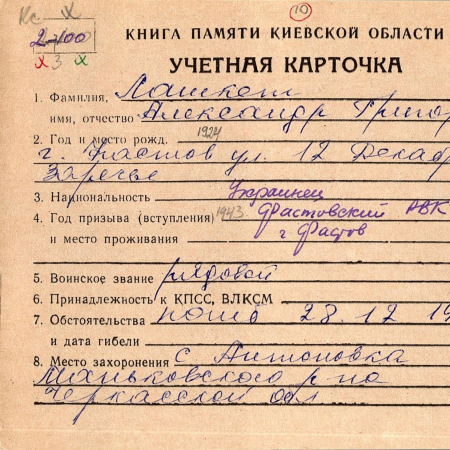 Кс X
10
2-100
х 3 х
КНИГА ПАМЯТИ КИЕВСКОЙ ОБЛАСТИ
УЧЕТНАЯ КАРТОЧКА
1. Фамилия, Лашкет
имя, отчество Александр Григор
2. Год и место рожд. 1924
г. Фастов ул. 12 Декаб
Заречье
3. Национальность Украинец
4. Год призыва (вступления) 1943 Фастовский РВК
и место проживания г Фастов
5. Воинское звание рядовой
6. Принадлежность к КПСС, ВЛКСМ
7. Обстоятельства погиб 28.12 19
и дата гибели
8. Место захоронения с Антоновка
Маньковского р-на
Черкасской обл